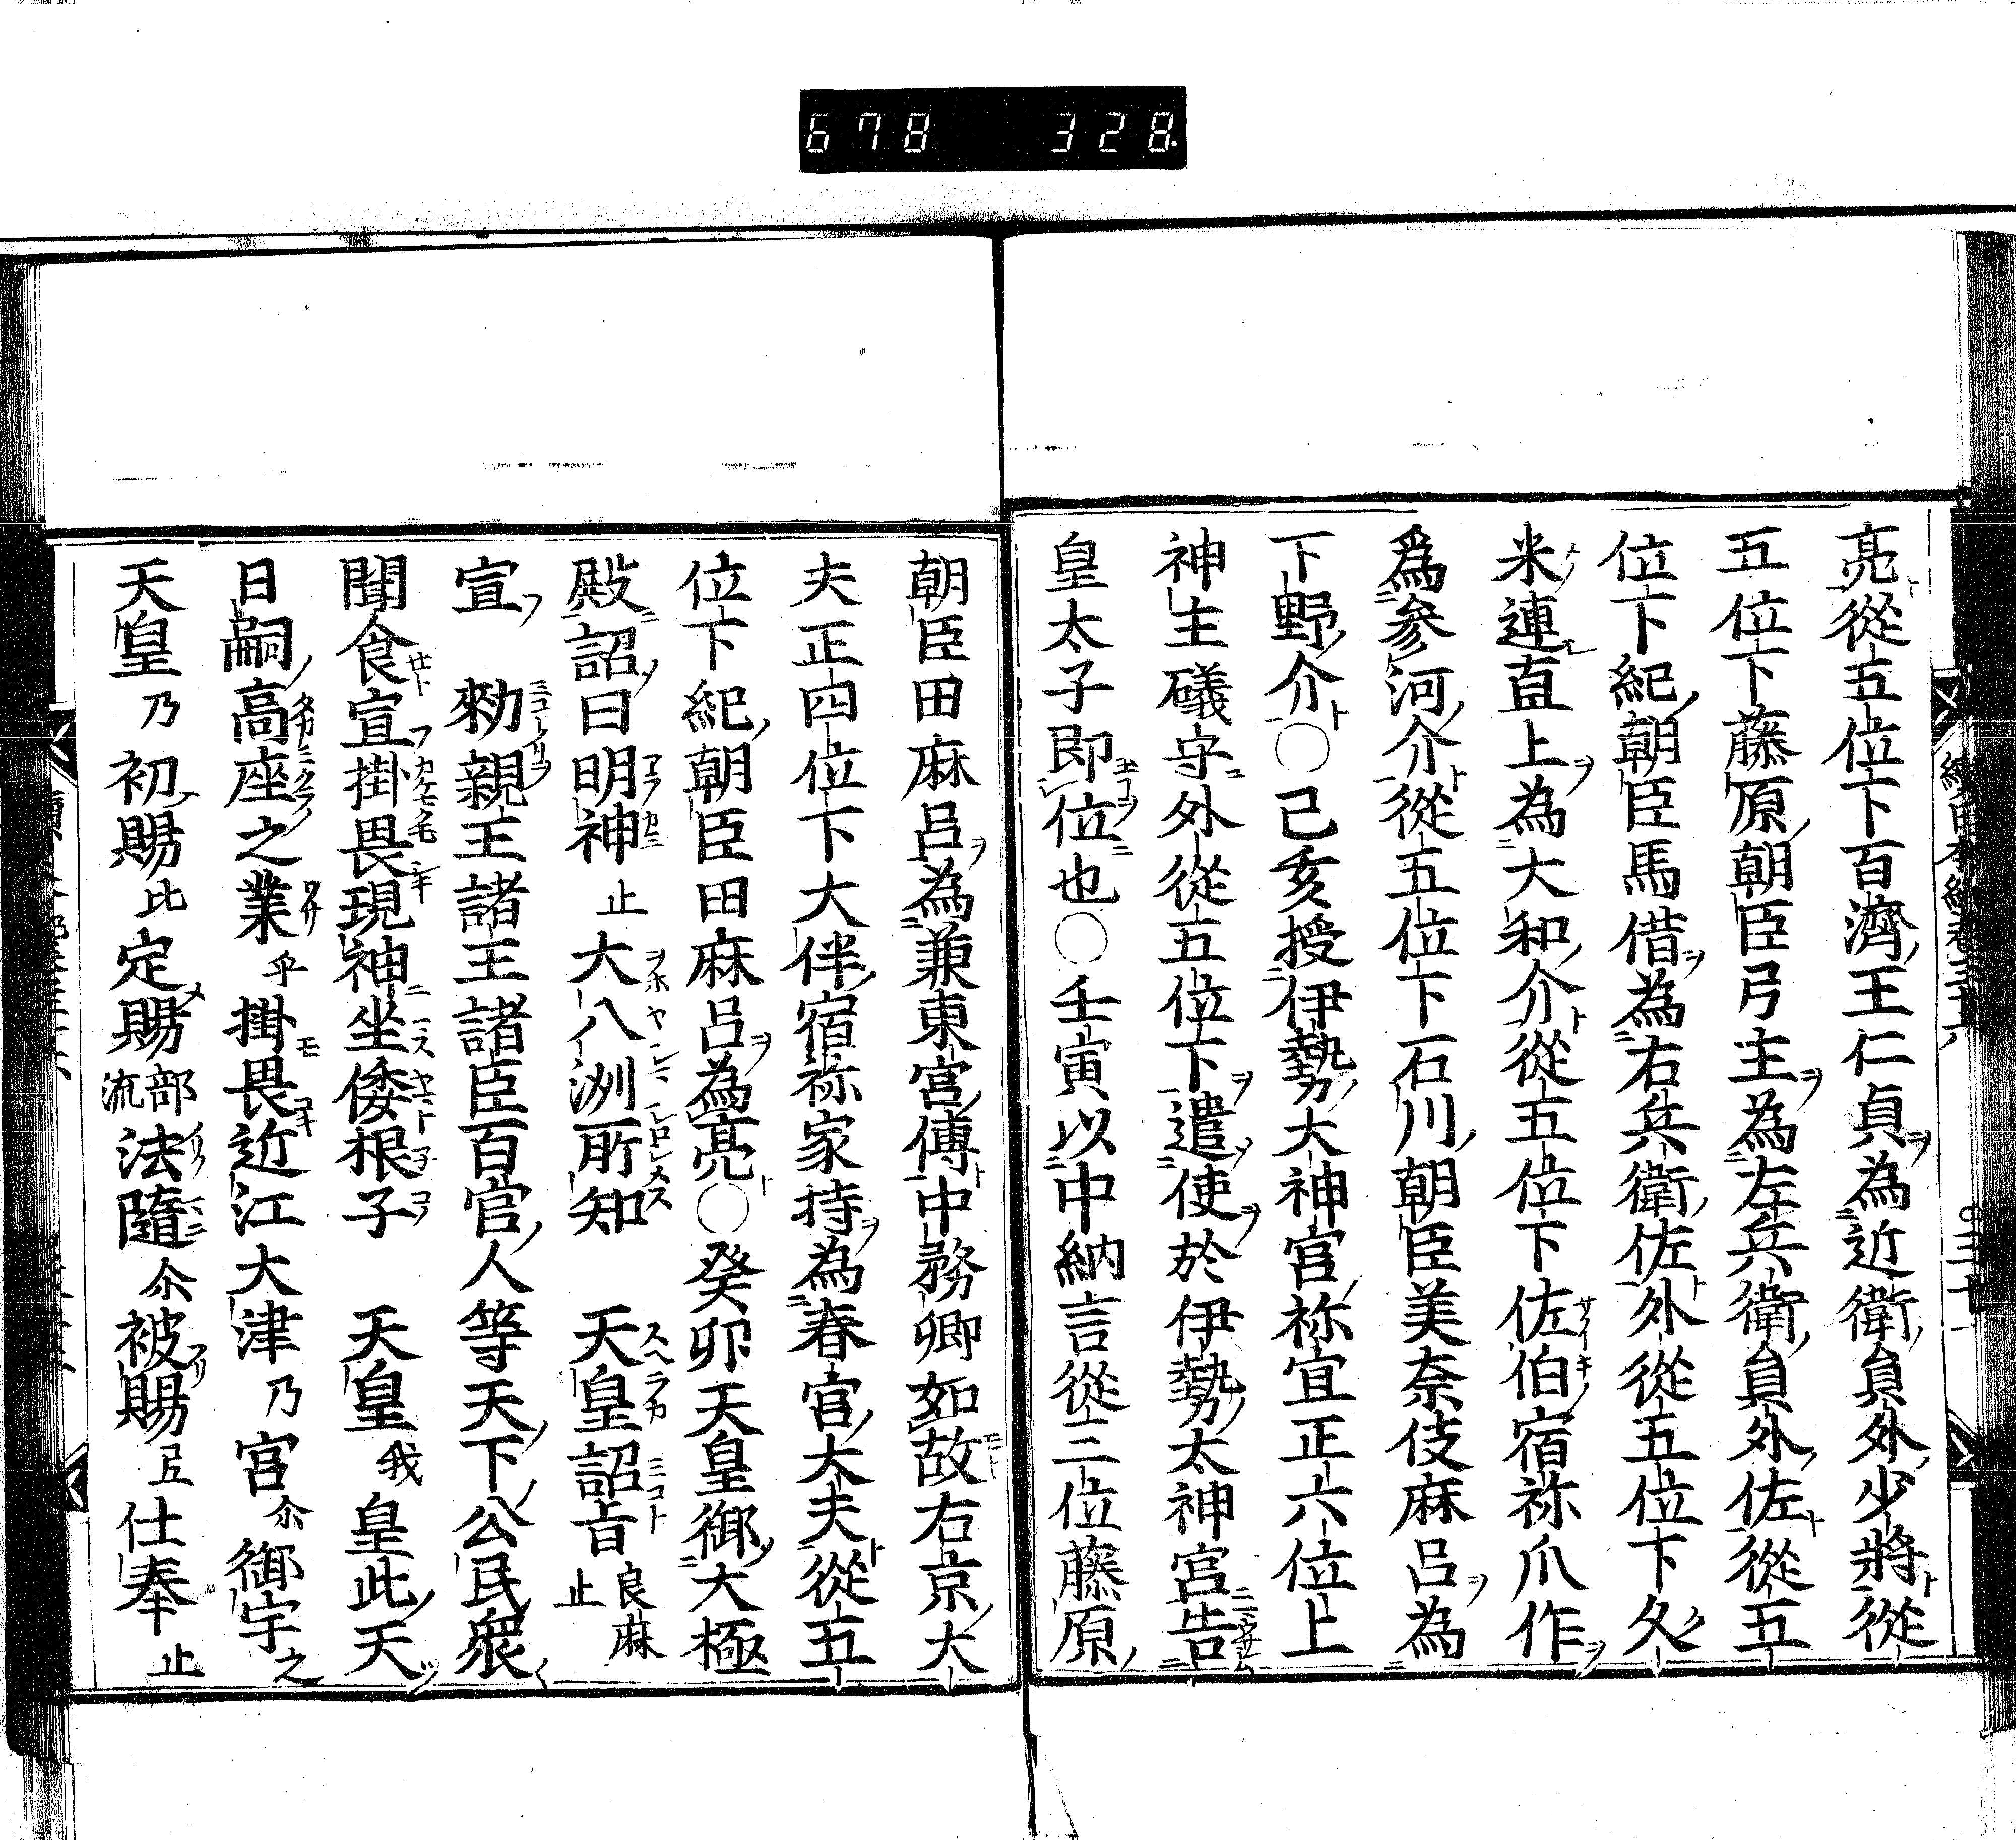 678 328
亮從五位下百濟王仁貞為近衛員外少將從
五位下藤原朝臣弓主為左兵衛員外佐從五
位下紀朝臣馬借為右兵衛佐外從五位下久
米連直上為大和介從五位下佐伯宿祢爪作
爲参河介從五位下石川朝臣美奈伎麻呂為
下野介〇己亥授伊勢大神宮祢宜正六位上
神主礒守外從五位下遣使於伊勢太神宮告
皇太子即位也〇壬寅以中納言從三位藤原
朝臣田麻呂為兼東宮傅中務卿如故右京大
夫正四位下大伴宿祢家持為春宮大夫從五
位下紀朝臣田麻呂為亮〇癸卯天皇御大極
殿詔曰明神止大八洲所知天皇詔旨良麻止
宣勑親王諸王諸臣百官人等天下公民衆
聞食宣掛畏現神坐倭根子天皇我皇此天
日嗣高座之業乎掛畏近江大津乃宮尒御宇之
天皇乃初賜比定賜部流法隨尒被賜弖仕奉止